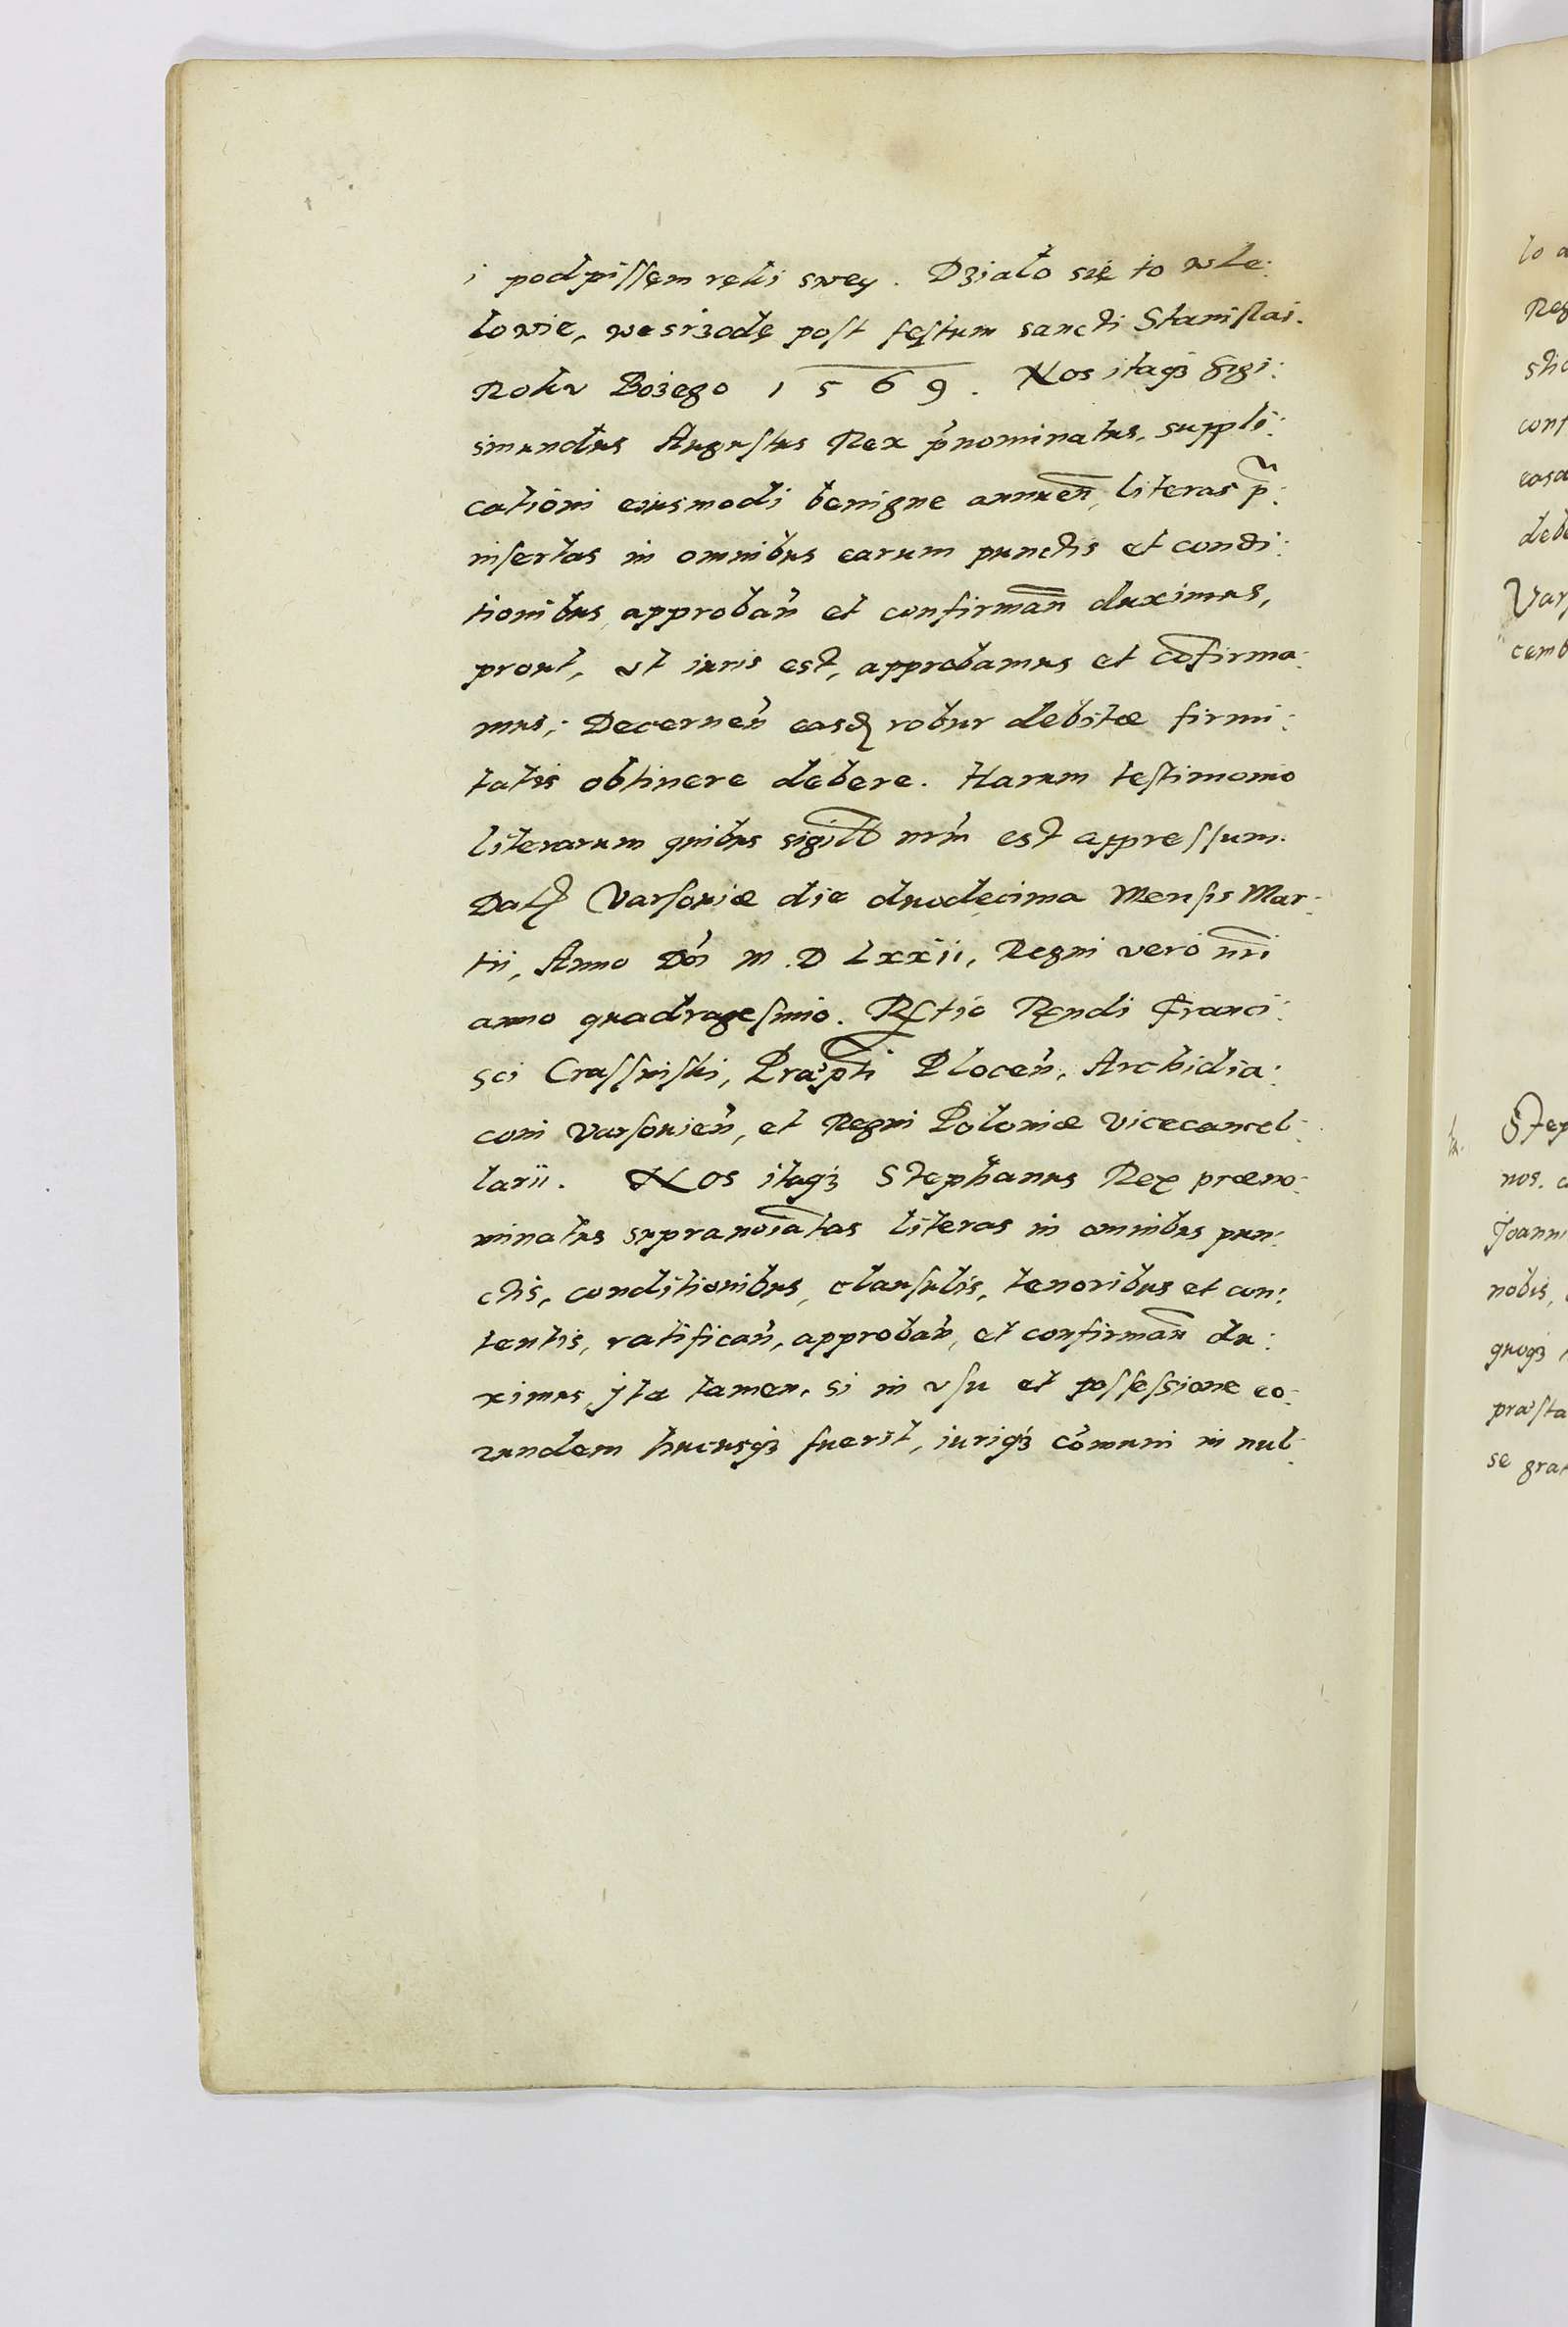 i podpissęm ręki swey. Działo się to w Le:
lowie, we srzodę post festum sancti Stanislai.
Roku Bożego 1569. Nos itaq₃ Sigi:
smundus Augustus Rex p̃nominatus, suppli:
cationi eiusmodi benigne annueñ, literas p̃:
insertas in omnibus earum punctis et condi:
tionibus approbañ et confirmañ duximus,
prout, vt iuris est, approbamus et cõfirma:
mus; Decerneñ easdꝫ robur debitæ firmi:
tatis obtinere debere. Harum testimonio
literarum quibus sigill̃ nr̃m est appressum.
Datꝫ Varsouiæ die duodecima Mensis Mar:
tii, Anno Dñi M.D Lxxii, Regni vero nr̃i
anno quadragesimo. Rꝫtio Rꝫndi Franci:
sci Crassinski, Præp̃ti Ploceñ, Archidia:
coni Varsouieñ, et Regni Poloniæ Vicecancel:
larii. Nos itaq₃ Stephanus Rex præno:
minatus supranoĩatas literas in omnibus pun:
ctis, conditionibus, clausulis, tenoribus et con:
tentis, ratificañ, approbañ, et confirmañ du:
ximus, jta tamen, si in vsu et possessione eo:
rundem hucusq₃ fuerit, iuriq₃ cõmuni in nul:
lo a
Reg
stio
conf
easd
debe
Vars
cemb
Step
nos. c
Joann
nobis,
quoq₃
præsta
se grat